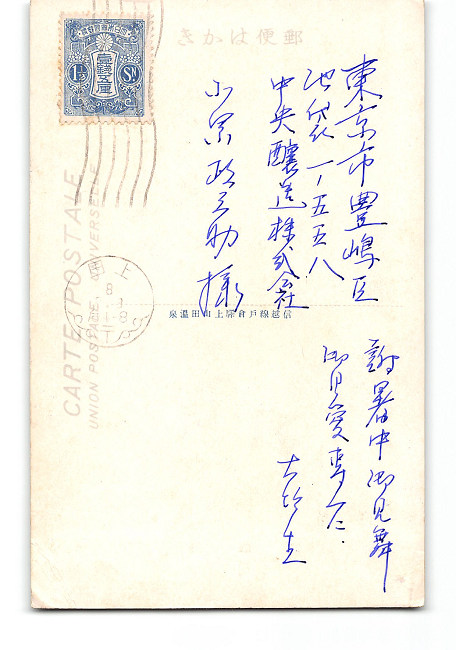 きかは便郵
壹錢五厘
1½ Sn
東京市豊嶋区
池袋一ノ一五五八
中央醸造株式会社
小 政之助様
CARTE POSTALE
UNION POSTALE UNIVERSELLE
上田
8
信越線戸倉驛上山田温泉
謝暑中御見舞
御自愛専一に
生